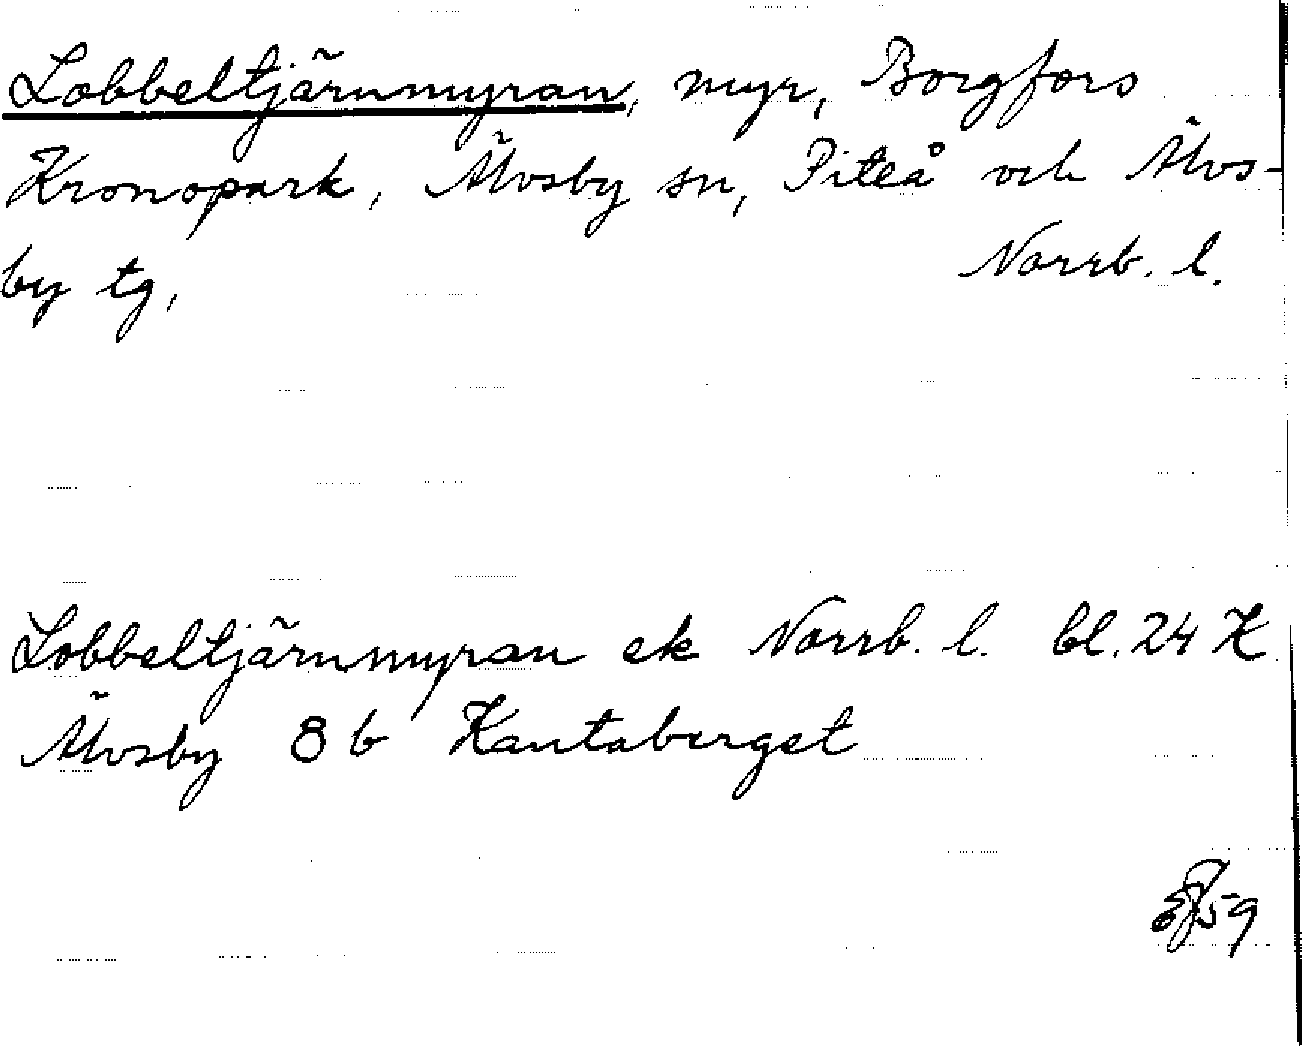 Lobbeltjärnmyran, myr, Borgfors
Kronopark, Älvsby sn, Piteå och Älvs-
by tg, Norrb. l.
Lobbeltjärnmyran ek Norrb. l. bl. 24 K
Älvsby 8 b Kantaberget
59